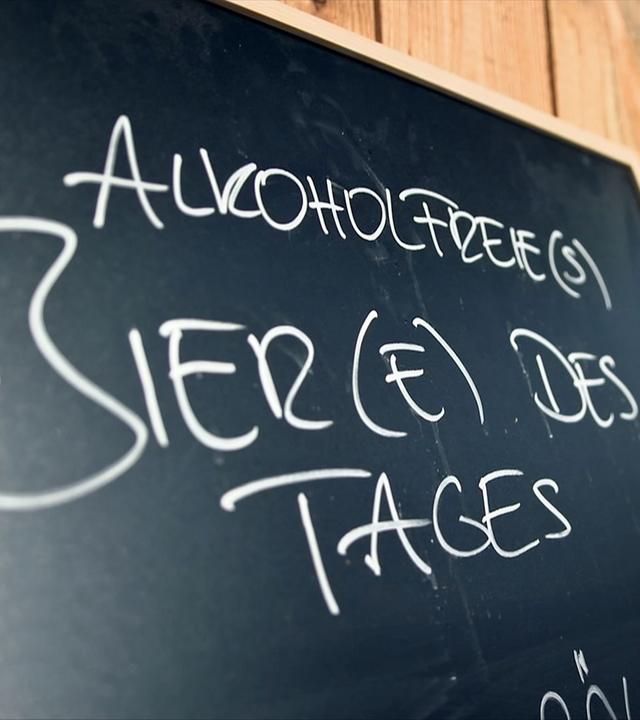 ALKOHOLFREIE(S)
BIER(E) DES
TAGES